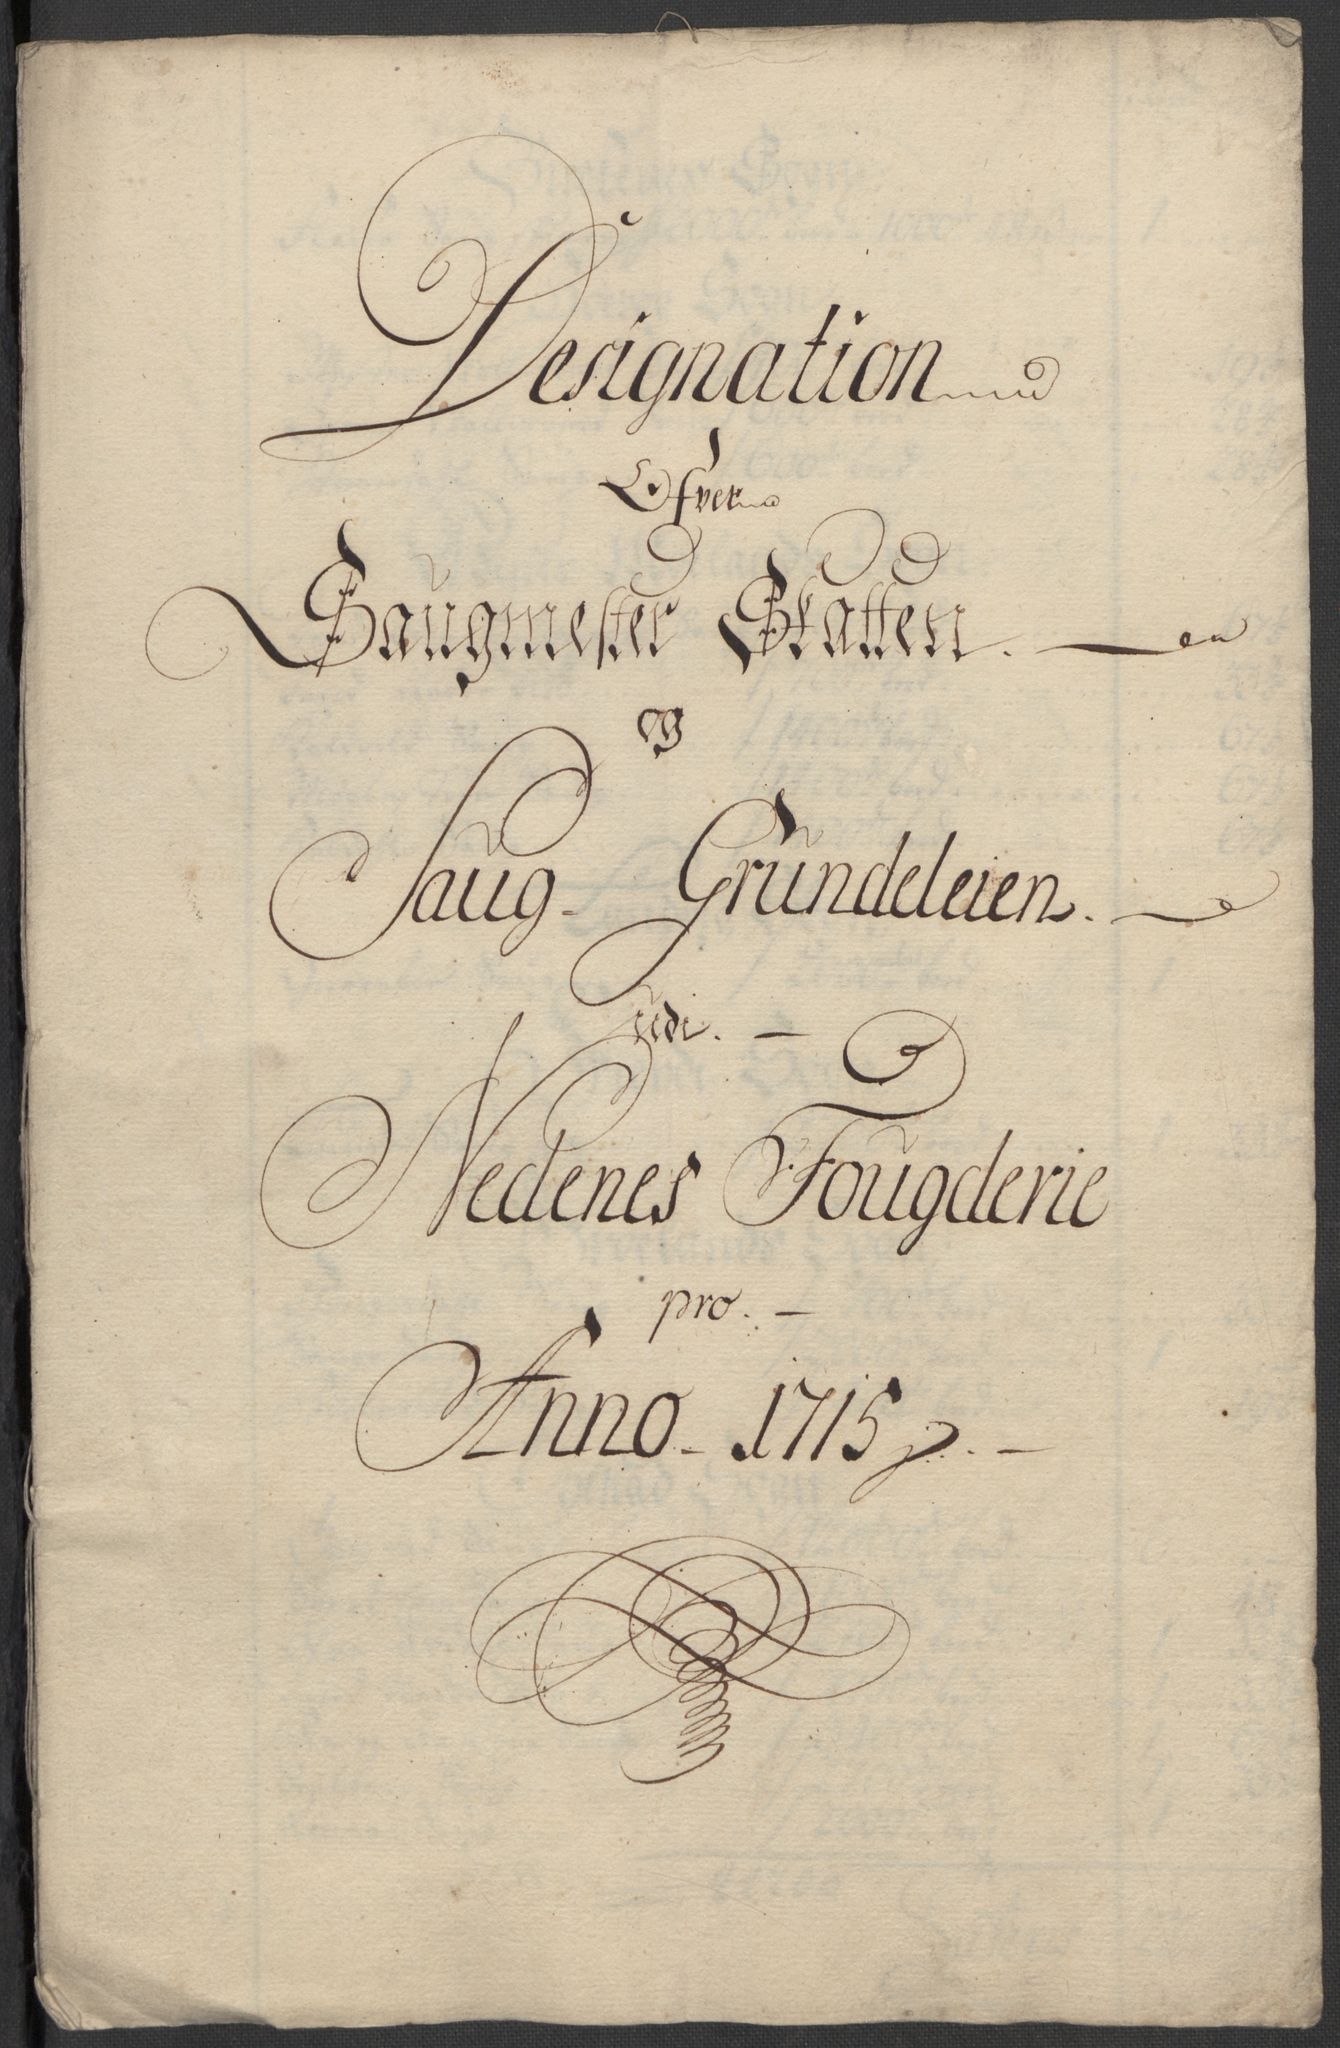 Designation
Ofver
Saugmester Skatten.
og
Saug- Grundeleien.
udi.
Nedenes Fougderie
pro.
Anno. 1715